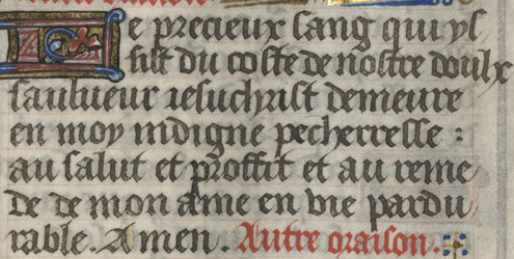 Le precieux sang qui ys
sist du coste de nostre doulx
saulueur iesuchrist demeure
en moy indigne pecherresse :
au salut et proffit et au reme
de de mon ame en vie pardu
rable. Amen. Autre oraison.